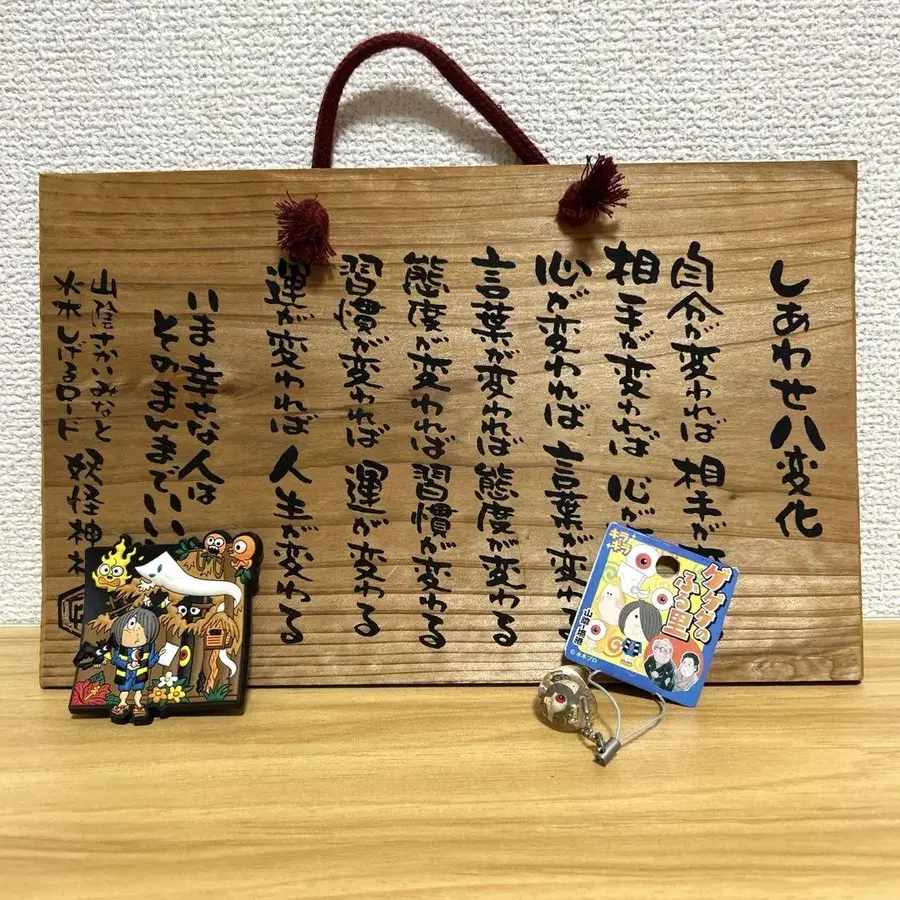 しあわせ八変化
自分が変われば 相手が
相手が変われば 心が
心が変われば 言葉が変わる
言葉が変われば 態度が変わる
態度が変われば 習慣が変わる
習慣が変われば 運が変わる
運が変われば 人生が変わる
いま幸せな人は
そのまんまでいい
山陰さかいみなと
水木しげるロード 妖怪神社
ゲゲゲの
ふる里
山陰・境港
©水木プロ